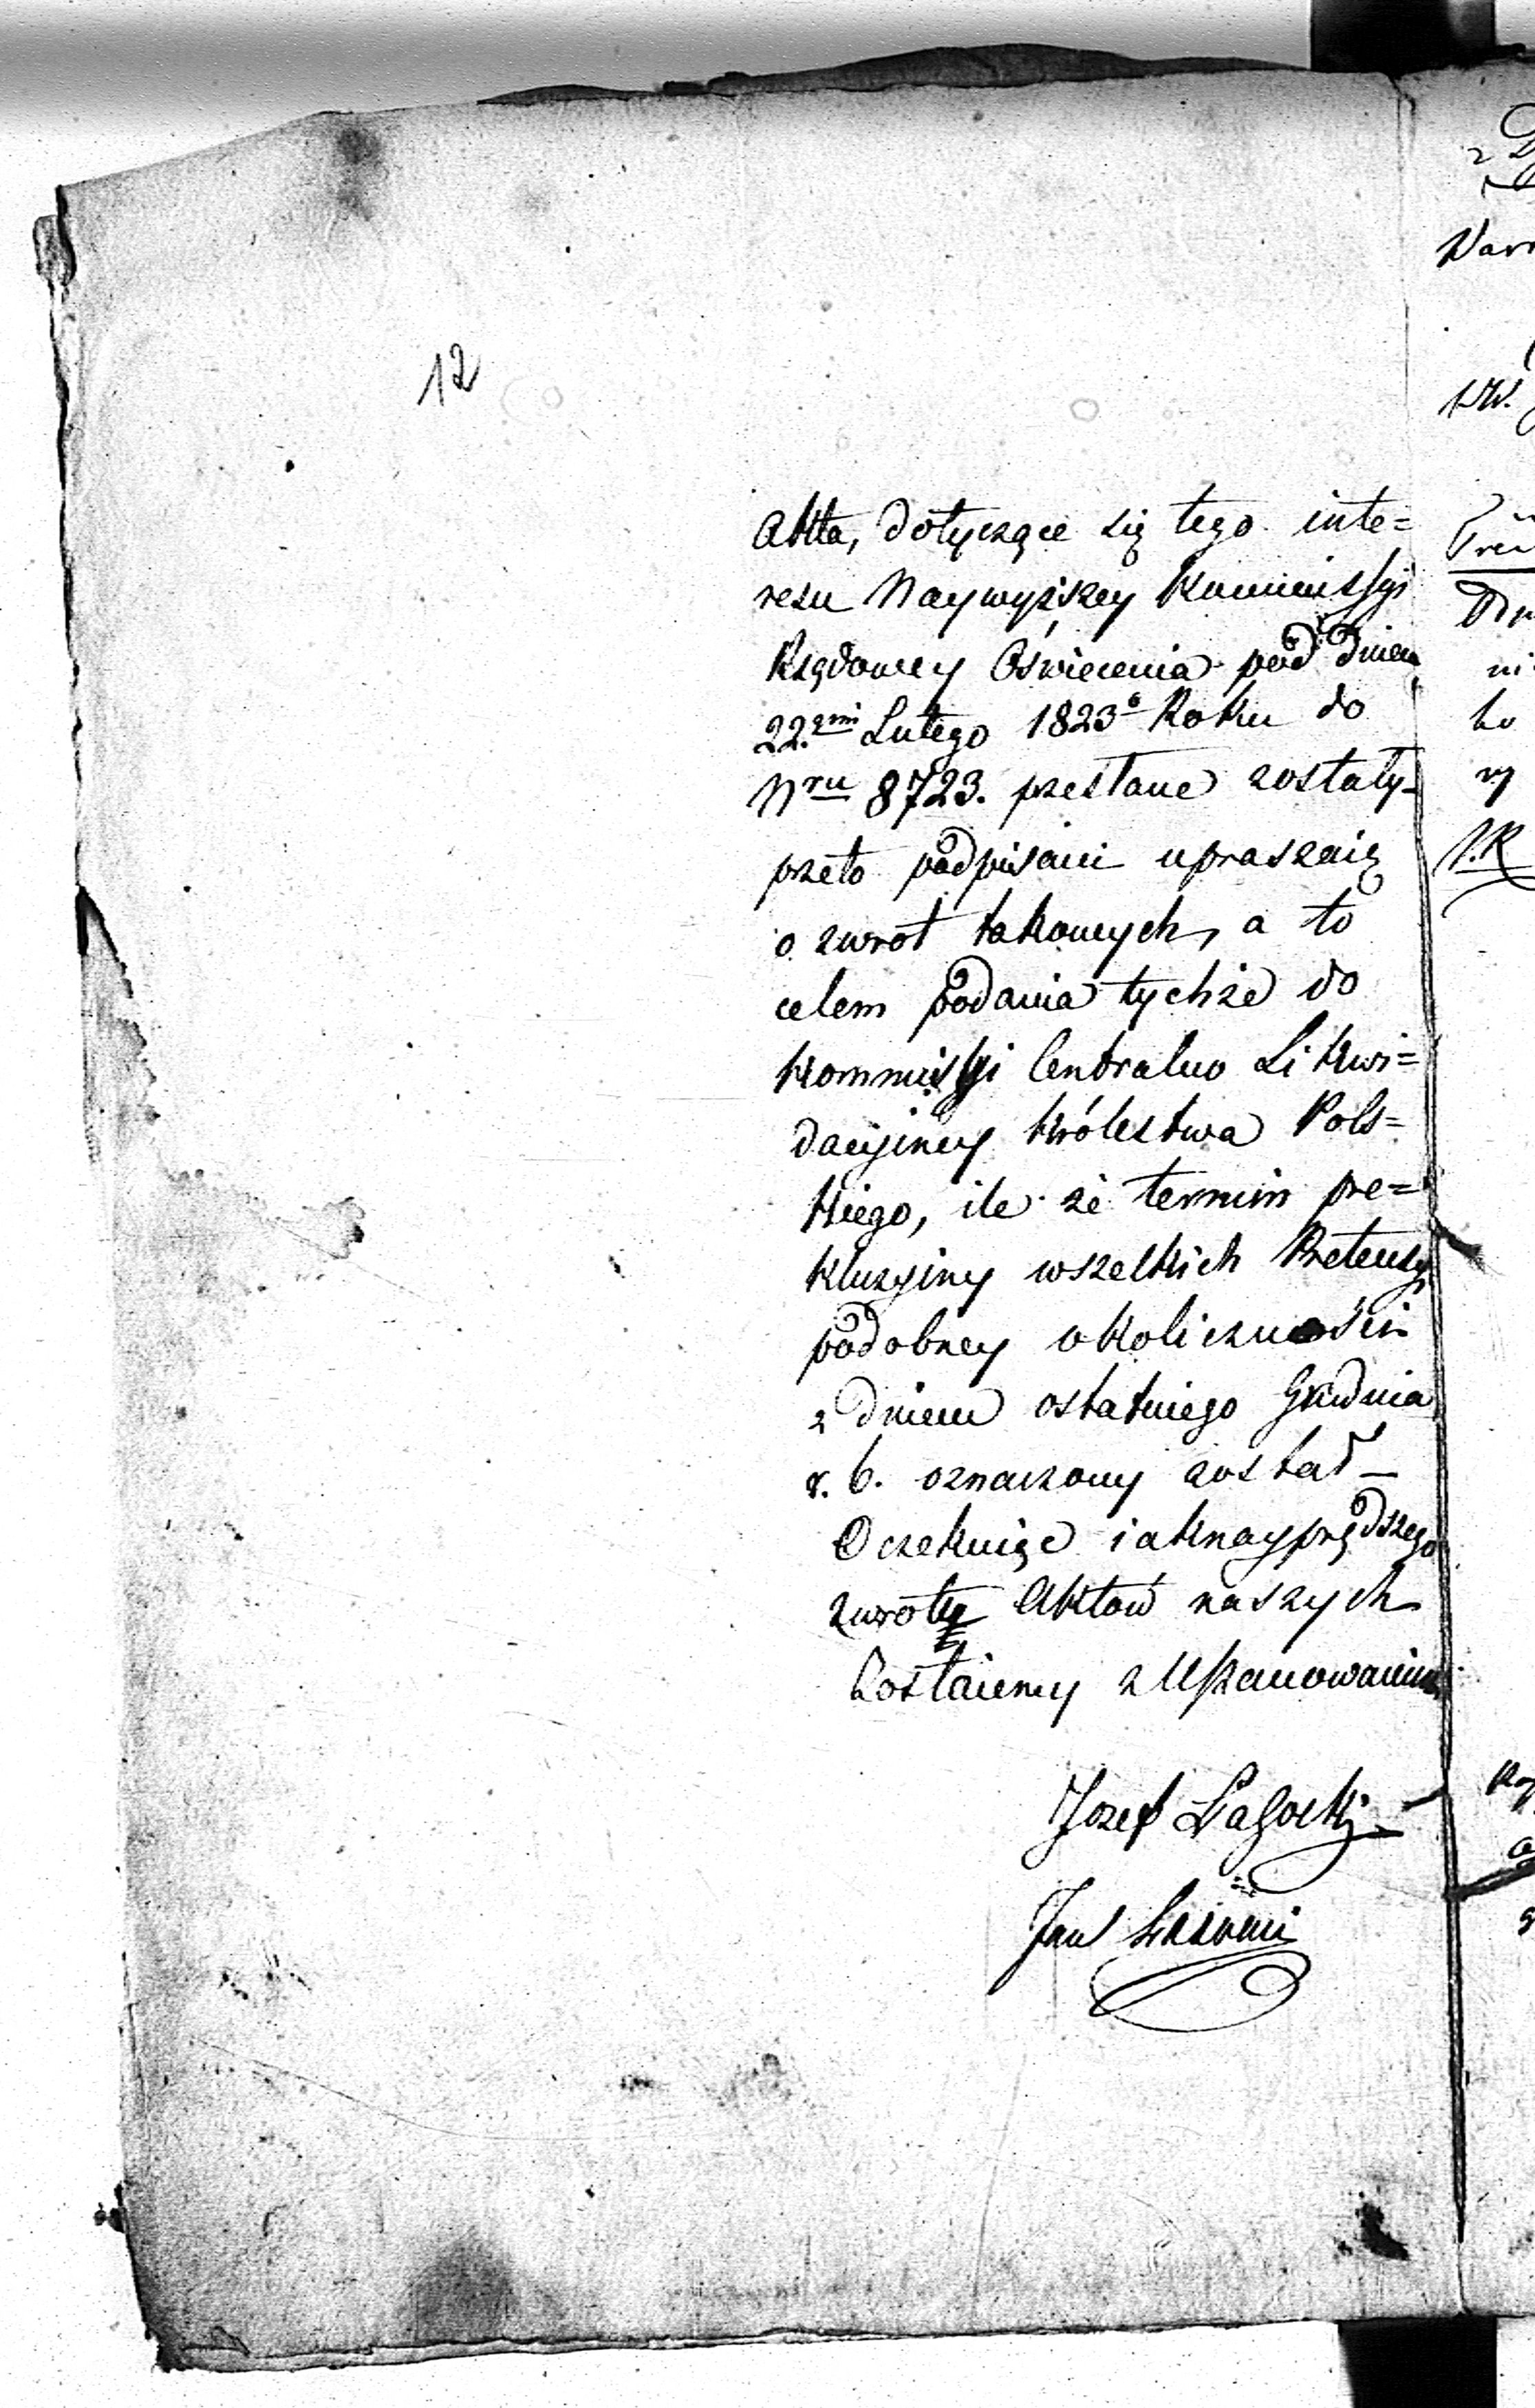 12
Akta, dotyczące się tego inte=
resu Naywyższey Kommissyi
Rządowey Oświecenia pod dniem
22.gim Lutego 1823o Roku do
Nru 8723. przesłane zostały_
przeto podpisani upraszaią
o zwrot takowych, a to
celem podania tychże do
Kommissyi Centralno Likwi=
dacyiney Królestwa Pols=
kiego, ile że termin pre=
kluzyiny wszelkich Pretensyi
podobney okoliczności
z dniem ostatniego Grudnia
r. b. oznaczony został_
Oczekuiąc iaknayprędszego
zwrotu Aktow naszych
Zostaiemy z Uszanowaniem
Jozef
Jan